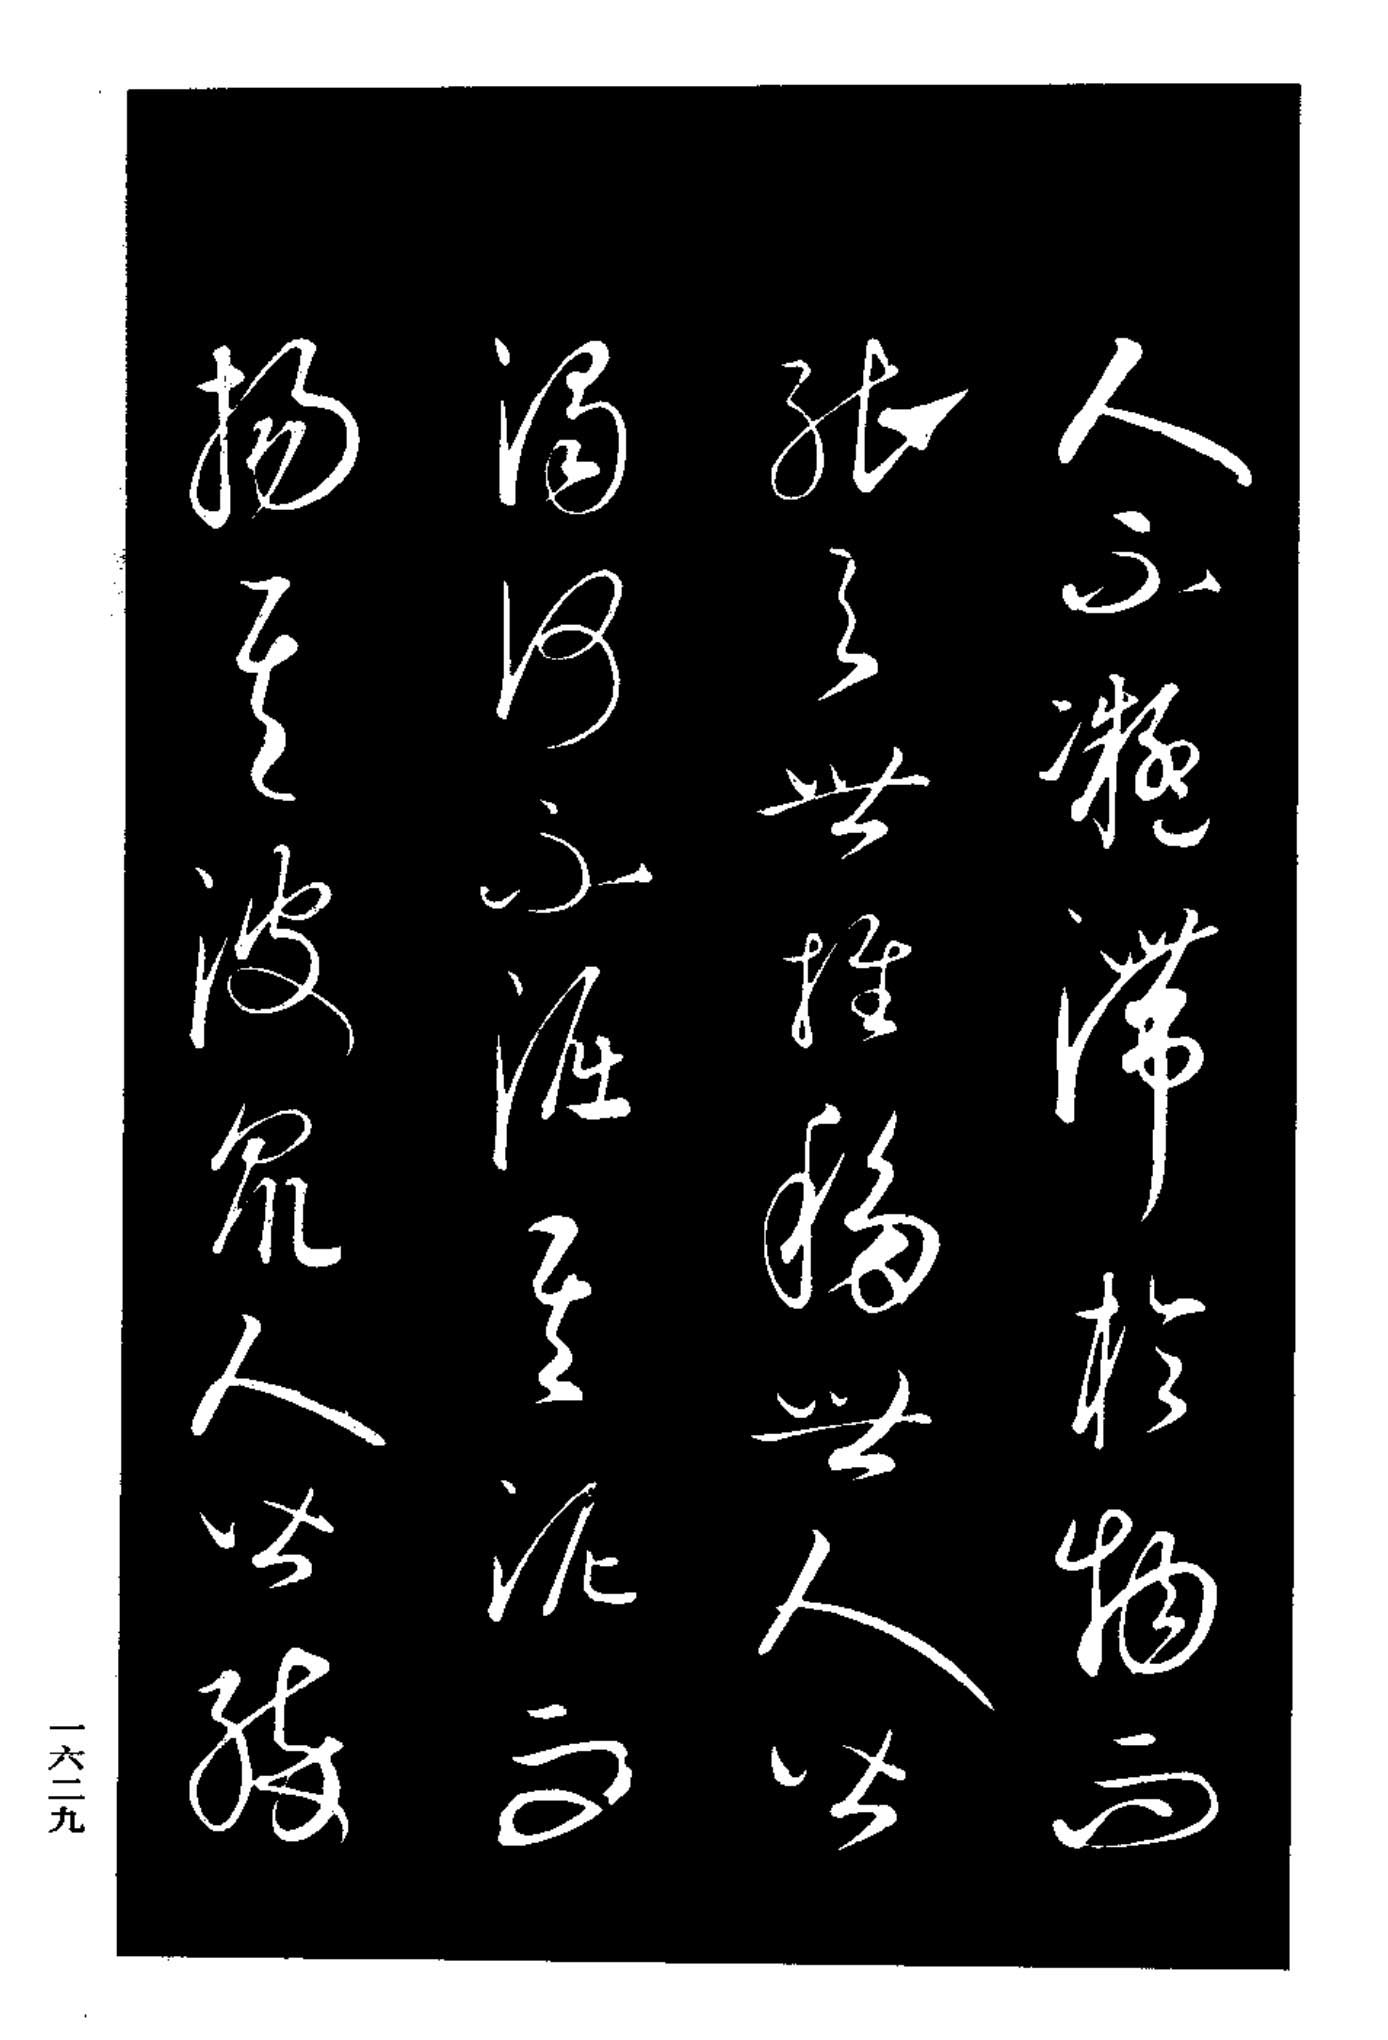 人不凝滯於物而
能與世推移世人皆
濁何不淈其泥而
揚其波衆人皆醉
一六二九